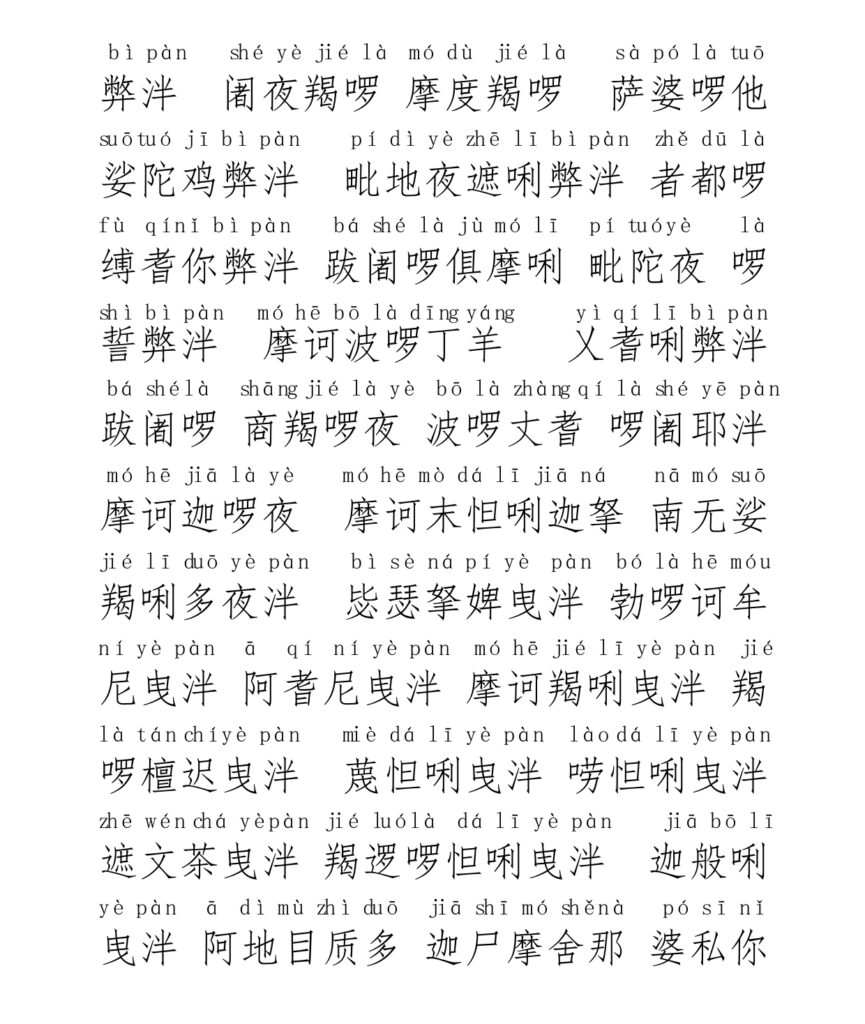 bì pàn shé yè jié là mó dù jié là sà pó là tuō
弊泮 阇夜羯啰 摩度羯啰 萨婆啰他
suō tuó jī bì pàn pí dì yè zhē lī bì pàn zhě dū là
娑陀鸡弊泮 毗地夜遮唎弊泮 者都啰
fù qí nǐ bì pàn bá shé là jù mó lī pí tuó yè là
缚耆你弊泮 跋阇啰俱摩唎 毗陀夜 啰
shì bì pàn mó hē bō là dīng yáng yì qí lī bì pàn
誓弊泮 摩诃波啰丁羊 乂耆唎弊泮
bá shé là shāng jié là yè bō là zhàng qí là shé yē pàn
跋阇啰 商羯啰夜 波啰丈耆 啰阇耶泮
mó hē jiā là yè mó hē mò dá lī jiā ná nā mó suō
摩诃迦啰夜 摩诃末怛唎迦拏 南无娑
jié lī duō yè pàn bì sè ná pí yè pàn bó là hē móu
羯唎多夜泮 毖瑟拏婢曳泮 勃啰诃牟
ní yè pàn ā qí ní yè pàn mó hē jié lī yè pàn jié
尼曳泮 阿耆尼曳泮 摩诃羯唎曳泮 羯
là tán chí yè pàn miè dá lī yè pàn lào dá lī yè pàn
啰檀迟曳泮 蔑怛唎曳泮 唠怛唎曳泮
zhē wén chá yè pàn jié luó là dá lī yè pàn jiā bō lī
遮文茶曳泮 羯逻啰怛唎曳泮 迦般唎
yè pàn ā dì mù zhì duō jiā shī mó shě nà pó sī nǐ
曳泮 阿地目质多 迦尸摩舍那 婆私你